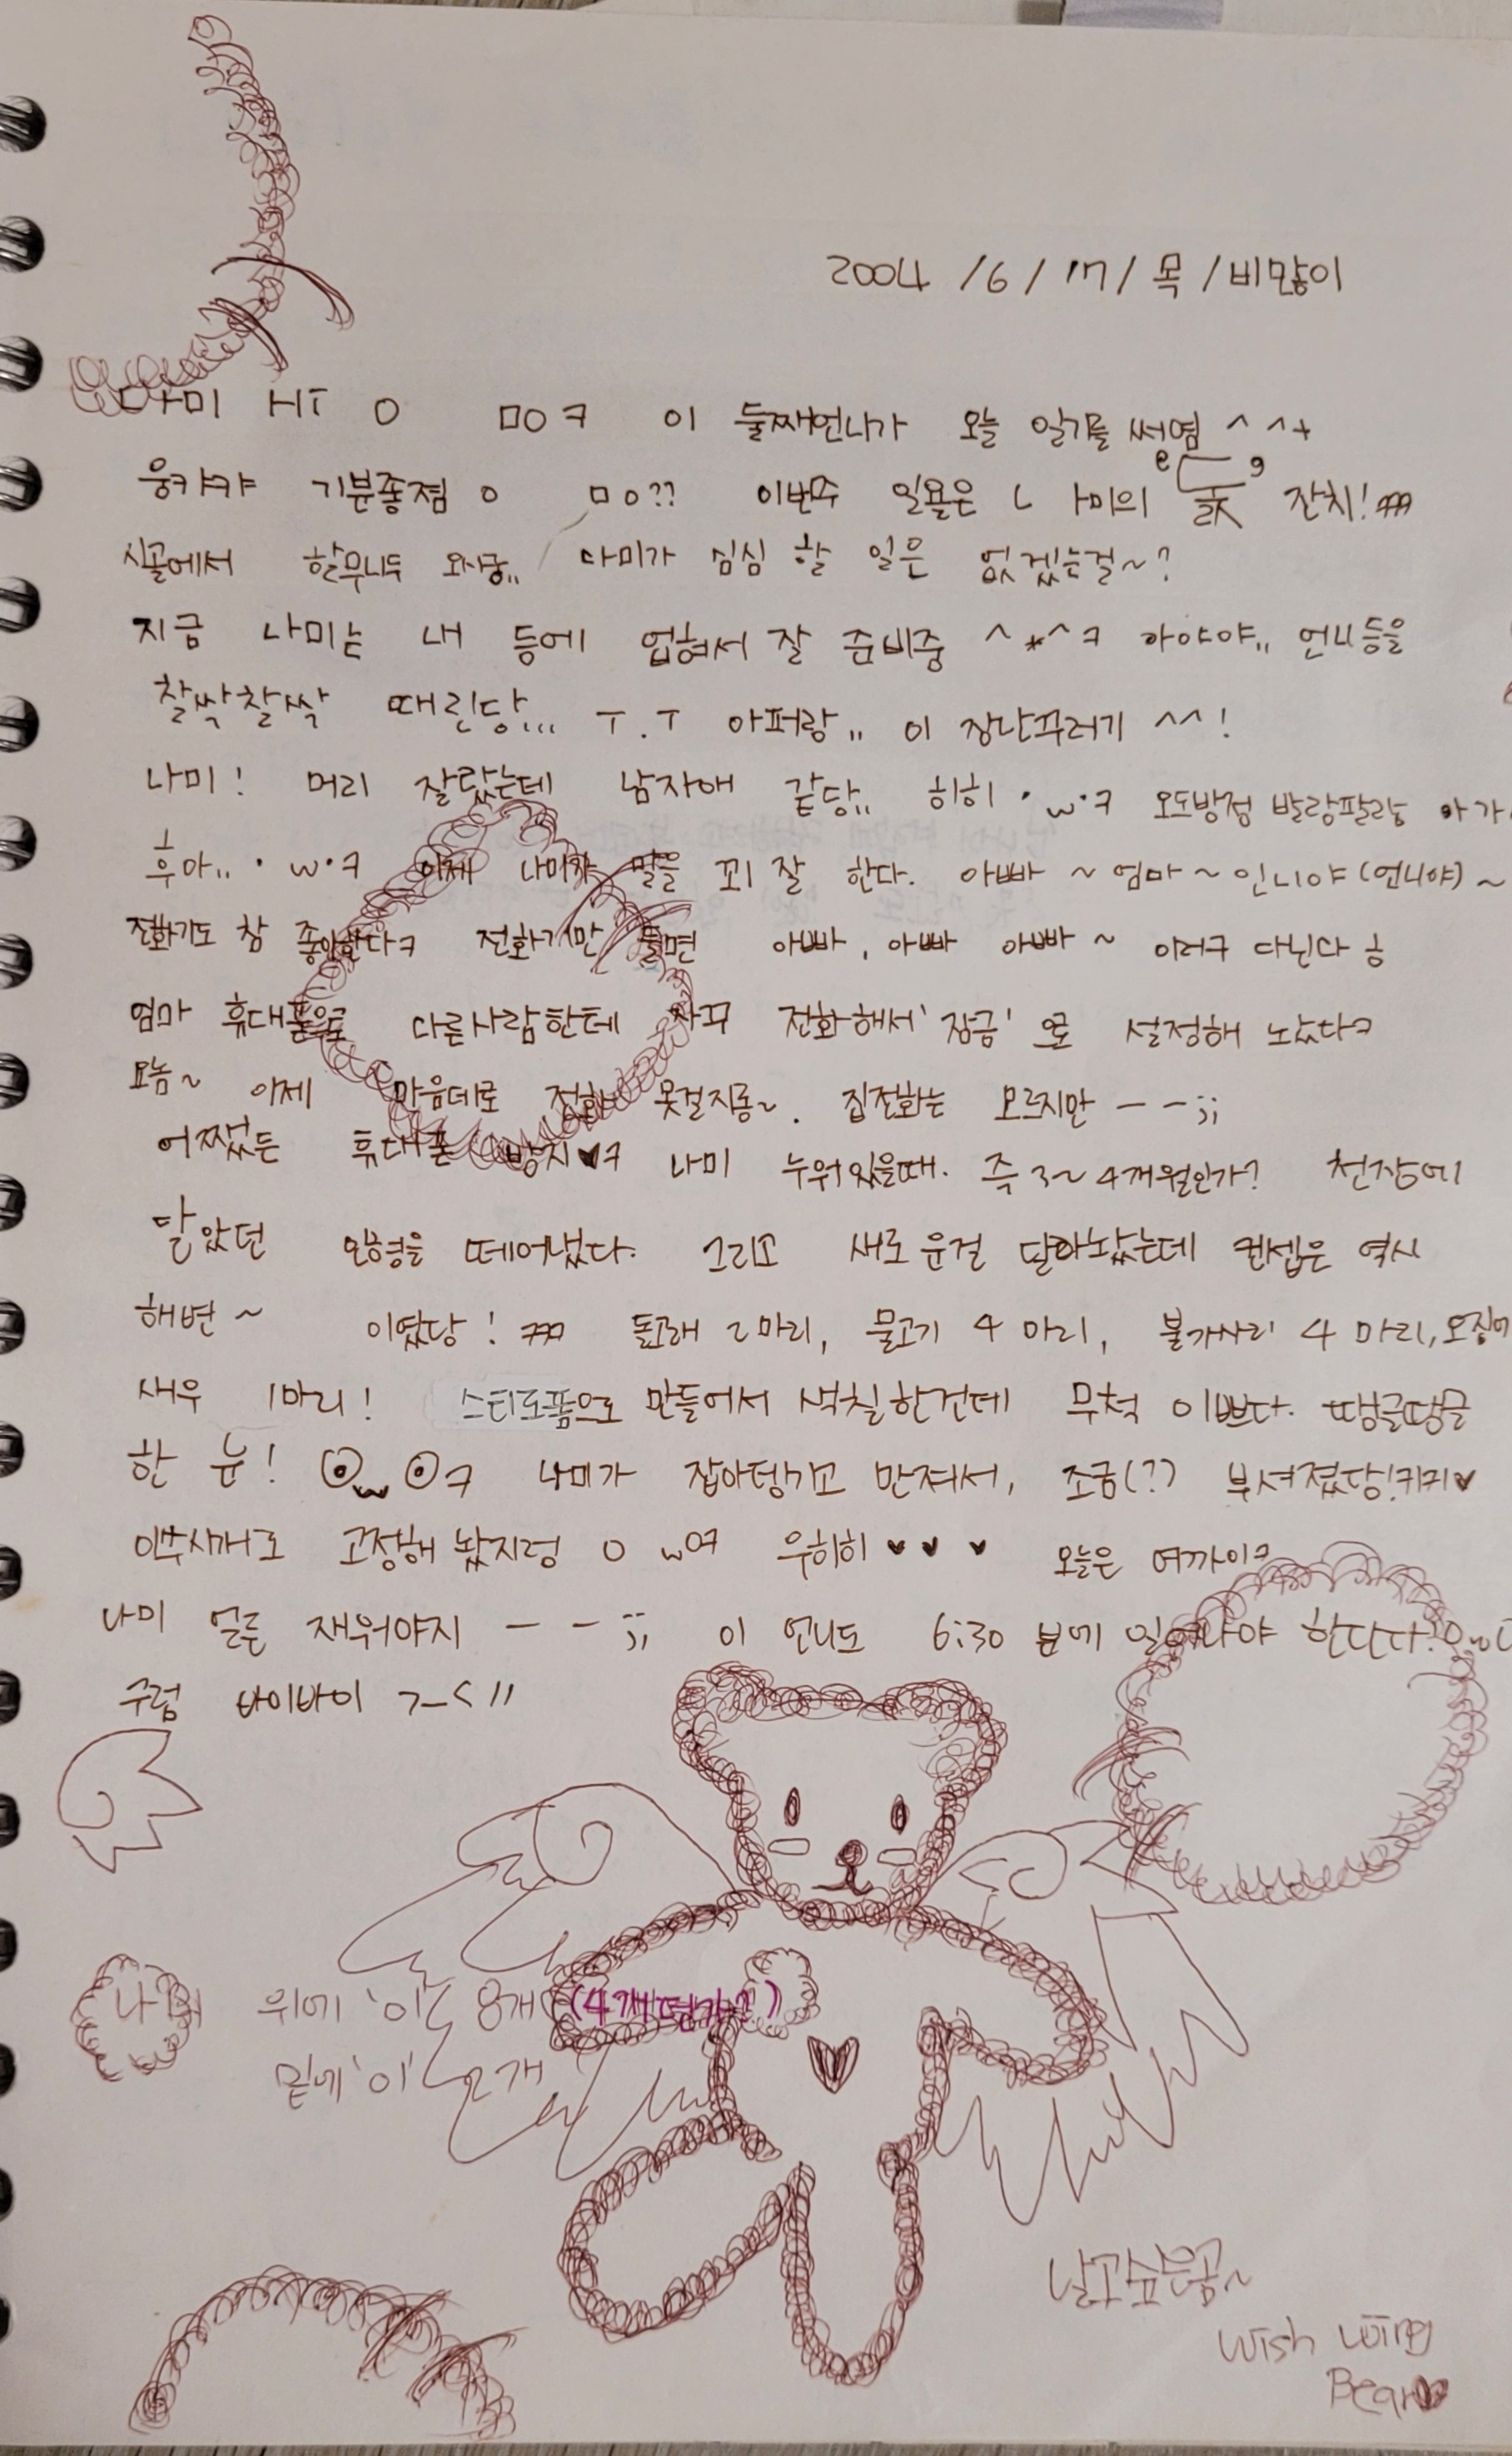 2004 /6/ 17/ 목 /비많이
나미 Hi ㅇ ㅁㅇㅋ 이 둘째언니가 오늘 일기를 써염 ^ ^+
웅캬캬 기분좋젬 ㅇ ㅁㅇ?? 이번주 일욜은 나미의 돐 잔치! ㅋㅋㅋ
시골에서 할무니두 오시궁,, 나미가 심심 할 일은 없겠는걸~?
지금 나미는 내 등에 업혀서 잘 준비중 ^*^ㅋ 아야야,, 언니등을
찰싹찰싹 때린당,,, ㅜ.ㅜ 아퍼랑,, 이 장난꾸러기 ^^!
나미! 머리 잘랐는데 남자애 같당,, 히히 ·ω·ㅋ 오도방정 발랑팔랑 아가
후아,, ·ω·ㅋ 이제 나미가 말을 꾀 잘 한다. 아빠 ~ 엄마 ~ 인니야 (언니야) ~
전화기도 참 좋아한다ㅋ 전화기만 들면 아빠, 아빠 아빠 ~ 이러구 다닌다 ㅎ
엄마 휴대폰으로 다른사람한테 자꾸 전화해서 '잠금' 으로 설정해 노았다ㅋ
요놈~ 이제 마음데로 전화 못걸지롱~. 집전화는 모르지만 ㅡ ㅡ;;
어쨌든 휴대폰 방지♥ㅋ 나미 누워있을때. 즉 3~4개월인가? 천장에
달았던 인형을 떼어냈다. 그리고 새로운걸 달아놨는데 컨셉은 역시
해변 ~ 이였당! ㅋㅋㅋ 돌고래 2마리, 물고기 4 마리, 불가사리 4 마리, 오징어
새우 1마리! 스티로폼으로 만들어서 색칠한건데 무척 이쁘다. 땡글땡글
한 눈! ⊙ω⊙ㅋ 나미가 잡아텅기고 만져서, 조금(?) 부셔졌당!키키♥
이쑤시개로 고정해 놨지렁 ㅇ ωㅇㅋ 우히히 ♥ ♥ ♥ 오늘은 여까이ㅋ
나미 얼른 재워야지 ㅡ ㅡ;; 이 언니도 6:30 분에 일어나야 한다
구럼 바이바이 >_< //
나미 위에 '이' 8개 (4개떵가?)
밑에 '이' 2개
날고싶은곰~
wish wing
Bear♥